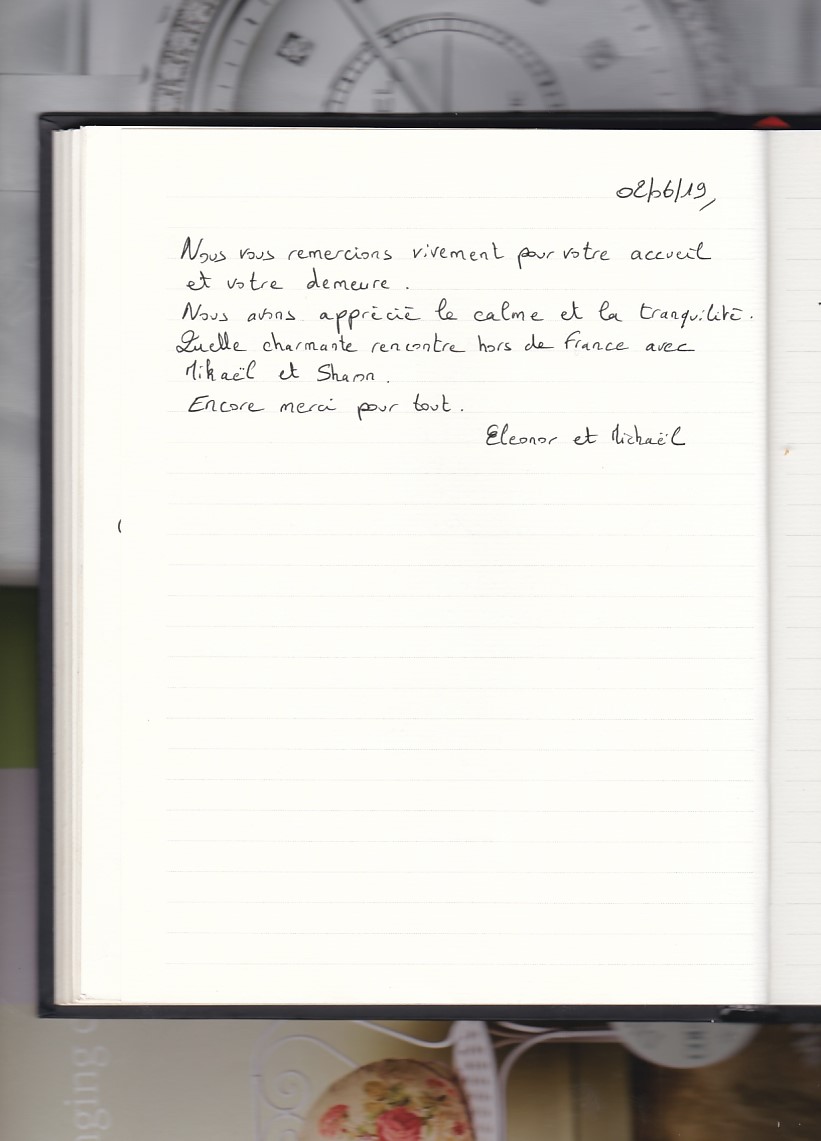 02/06/19,
Nous vous remercions vivement pour votre accueil
et votre demeure.
Nous avons apprécié le calme et la tranquilité.
Quelle charmante rencontre hors de France avec
Mikaël et Sharon.
Encore merci pour tout.
Eleonor et Michaël
nging